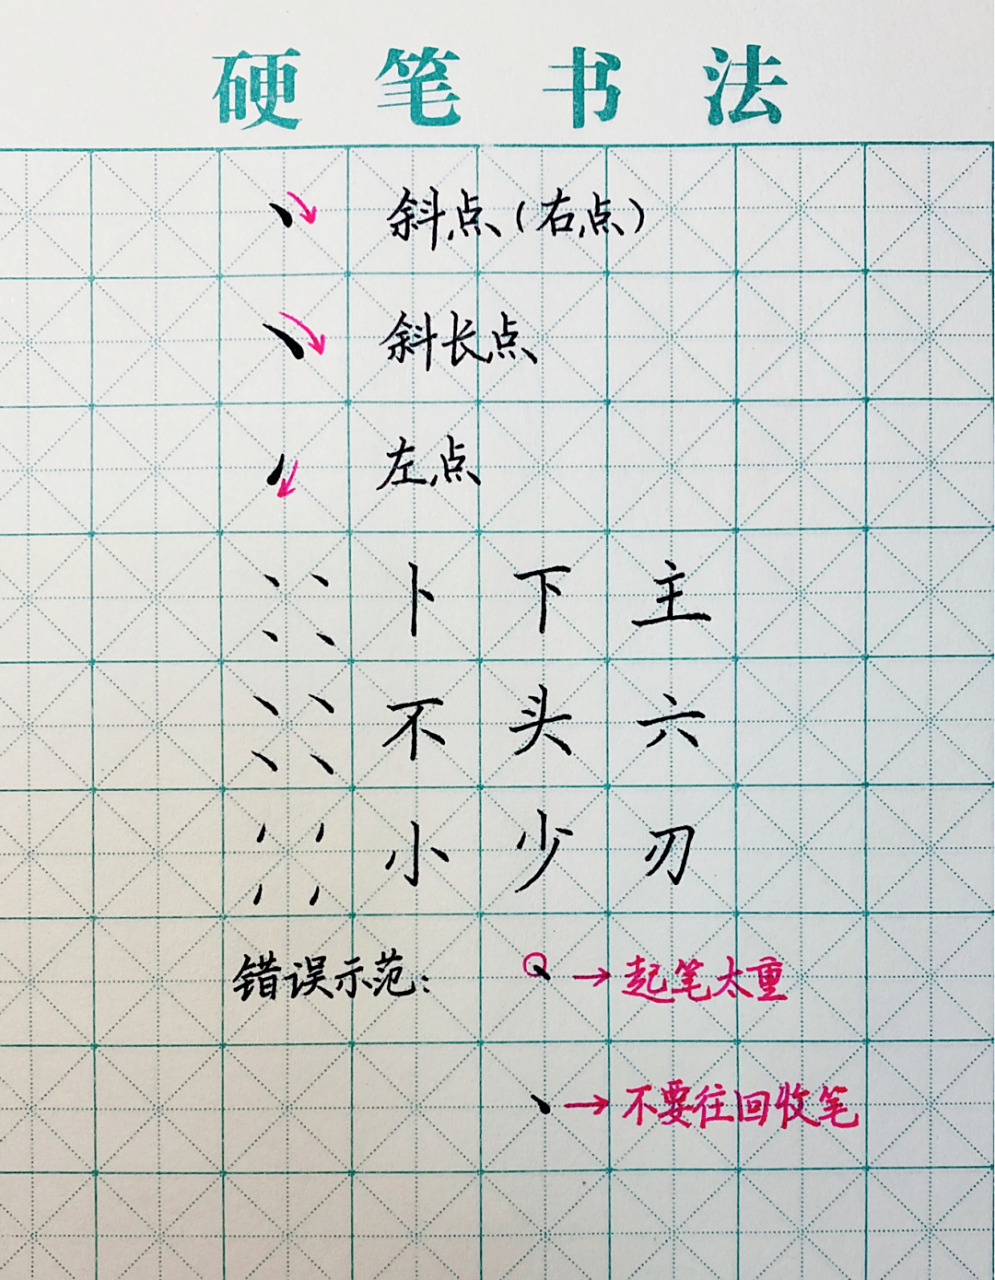 硬笔书法
斜点（右点）
斜长点
左点
卜下主
不头六
小少刃
错误示范： → 起笔太重
→ 不要往回收笔